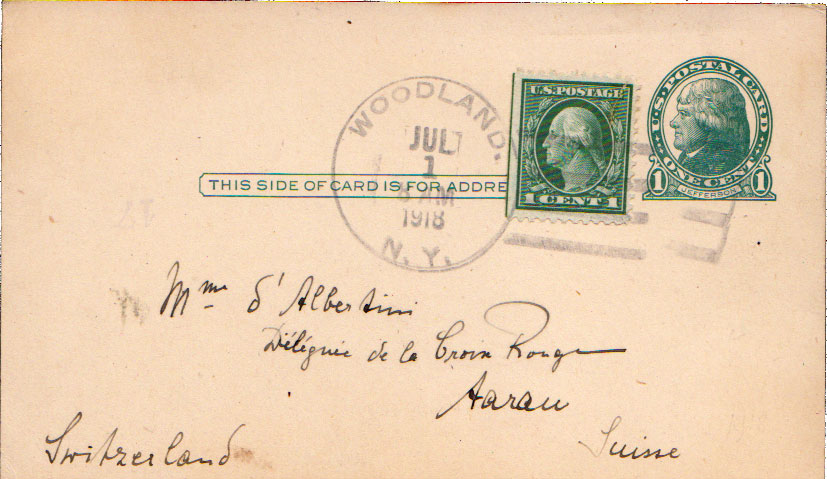 WOODLAND.
JUL
1
8 AM
1918
N. Y.
U.S. POSTAGE
1 CENT 1
U.S. POSTAL CARD
ONE CENT
1 JEFFERSON 1
THIS SIDE OF CARD IS FOR ADDRE
Mme d'Albertini
Déléguée de la Croix Rouge
Aarau
Suisse
Switzerland